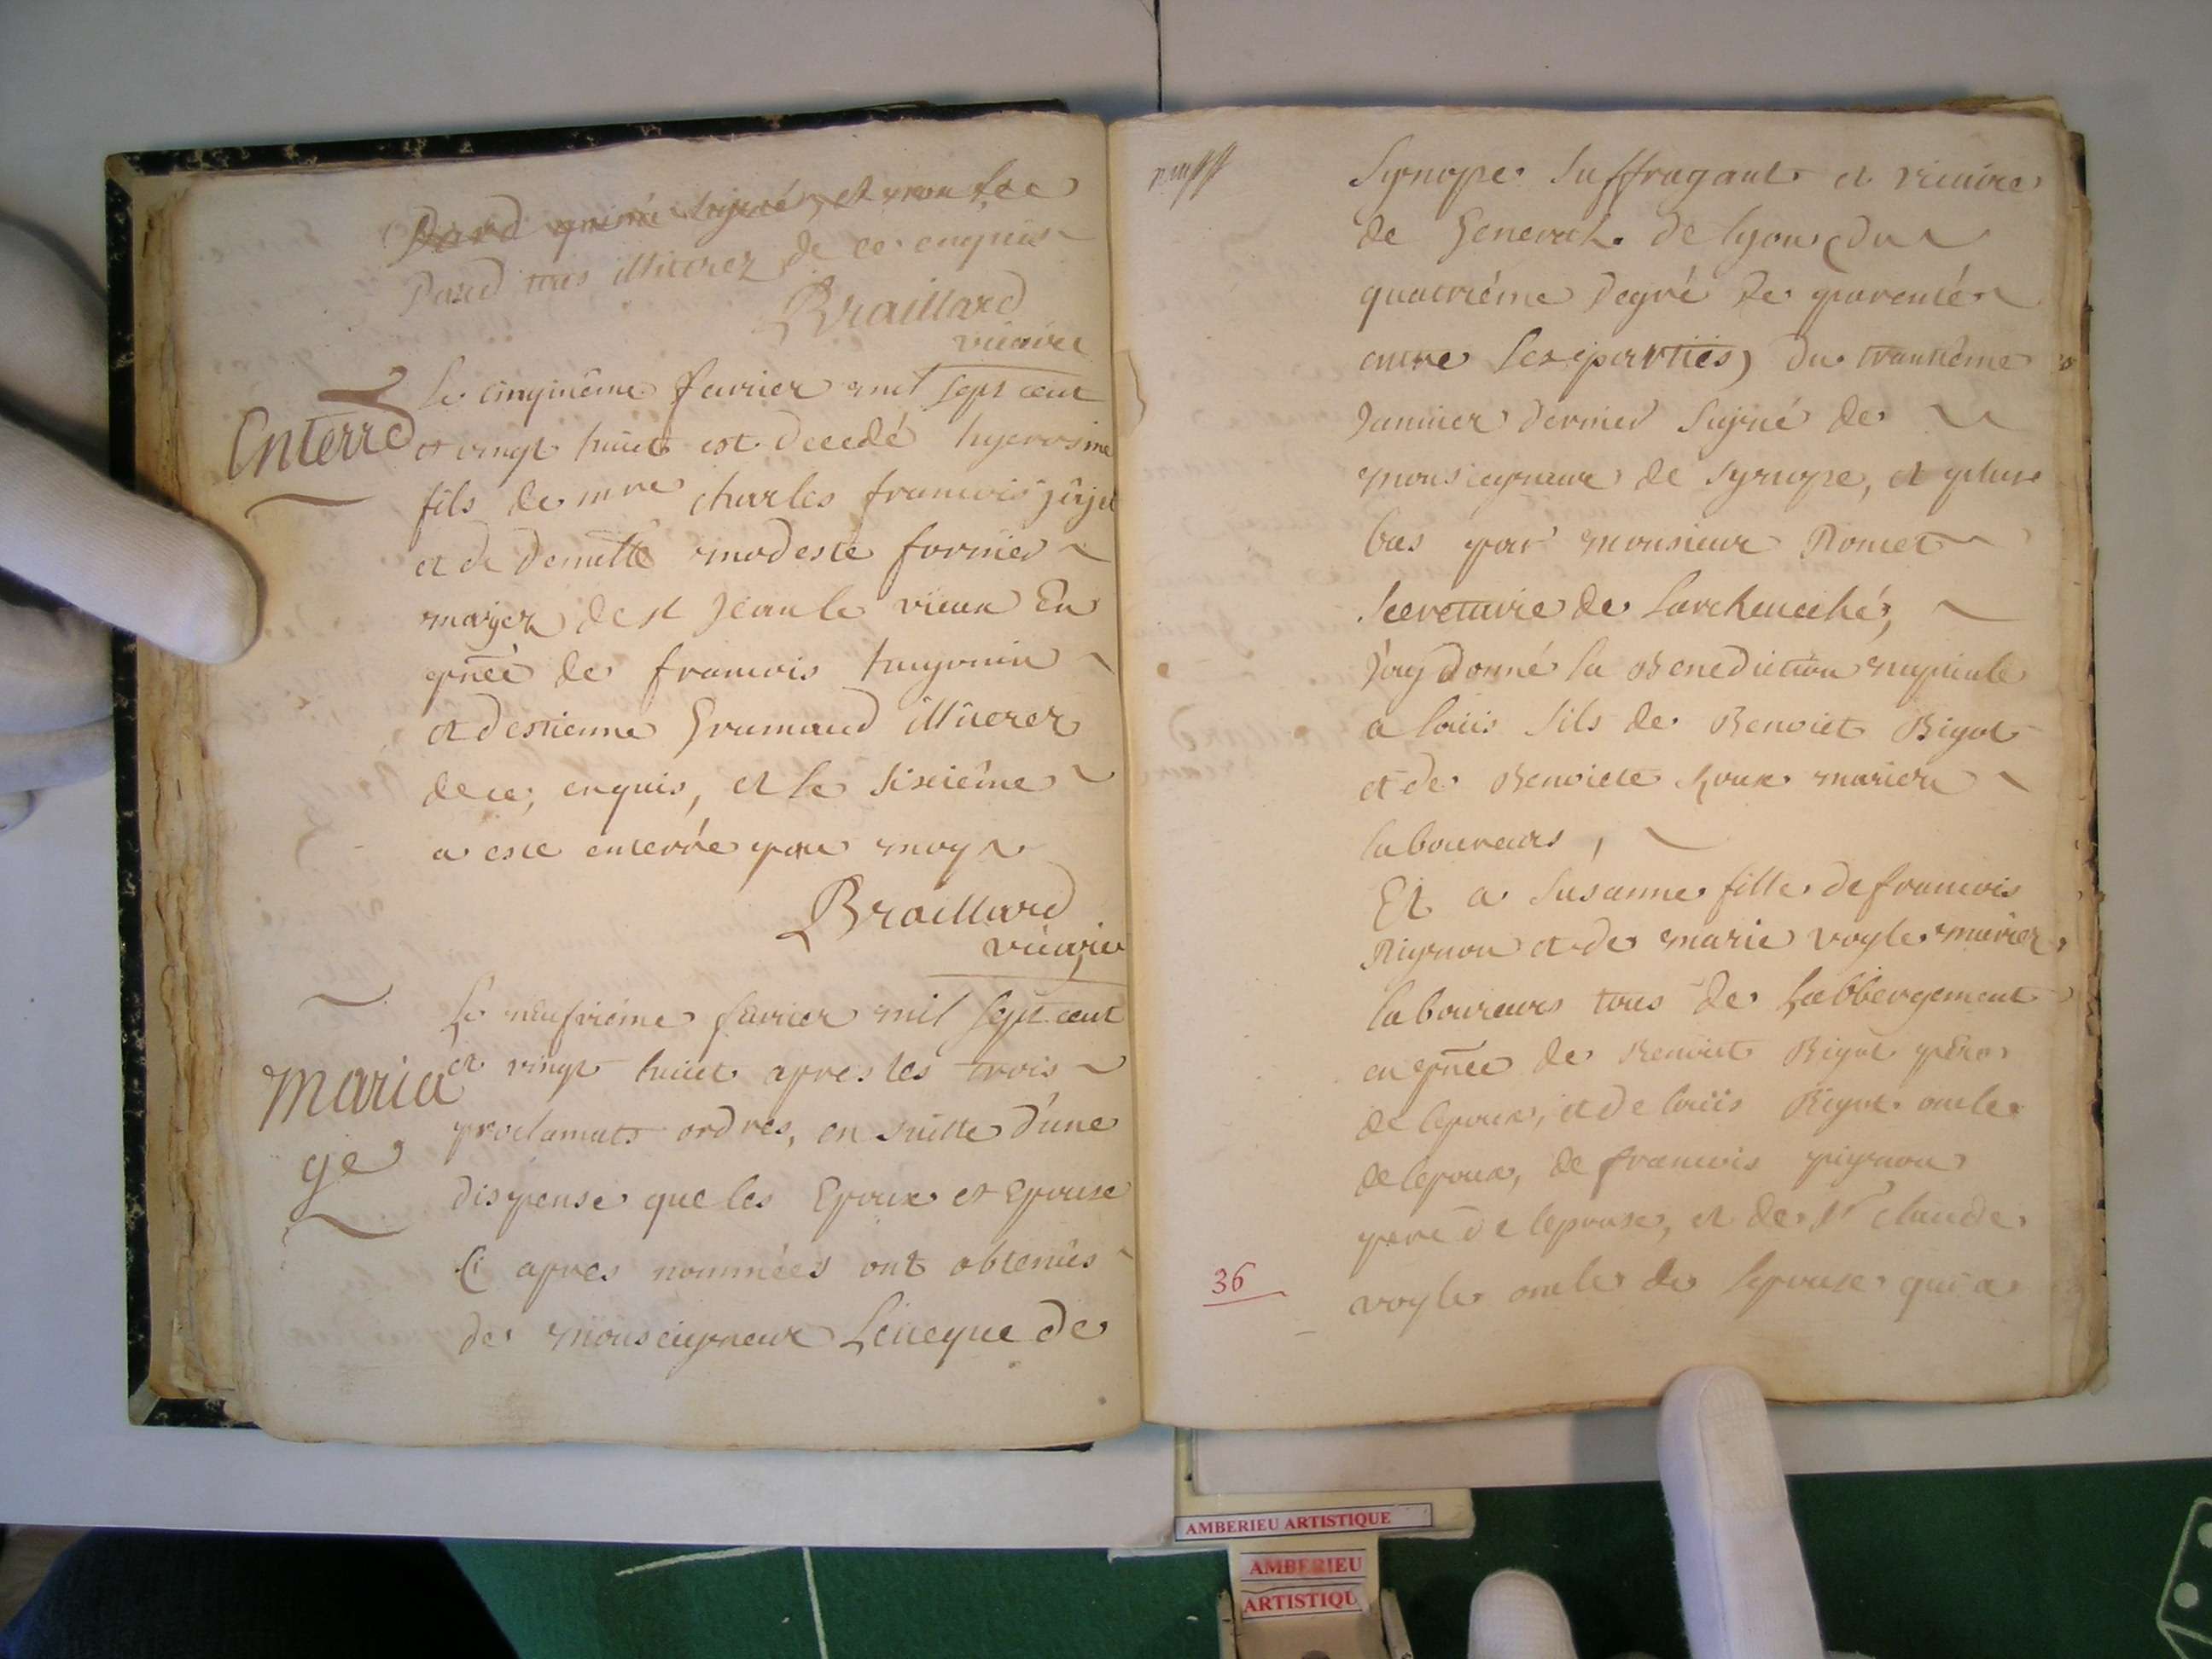 Dard qui n'a signé, et
Dard tous illiterez de ce enquis
Braillard
vicaire
Enterre
Le cinqiuême fevrier mil sept cent
et vingt huict est decedé hyerosme
fils de mre charles francois
et de demlle modeste fornier
mariez de st Jean le vieux En
pnce de francois hugonin
et destienne Gramand illiterez
de ce, enquis, et le sixiême
a esté enterré par moy
Braillard
vicaire
Maria
ge
Le neufviéme fevrier mil sept cent
et vingt huict apres les trois
proclamats ordres, en suitte d'une
dispense que les Epoux et Epouse
Ci apres nommées ont obtenûs
de monseigneur Leveque de
Synope suffragant et vicaire
de General de lyon (du
quatriéme degré de parenté
entre les parties) du trantiême
Janvier dernier signé de
monseigneur de Synope, et plus
bas par monsieur Romet
secretaire de Larcheveché,
J'ay donné la Benediction nuptiale
a loüis fils de Benoict Bigot
et de Benoicte Roux mariez
laboureurs,
Et a Susanne fille de francois
Pignon et de marie voyle mariez
laboureurs tous de Labbergement
en pnce de Benoict Bigot pere
de lepoux, et de loüis Bigot oncle
de lepoux, de francois pignon
pere de lepouse, et de Sr claude
voyle oncle de lepouse qui a
36
AMBERIEU ARTISTIQUE
AMBERIEU
ARTISTIQU